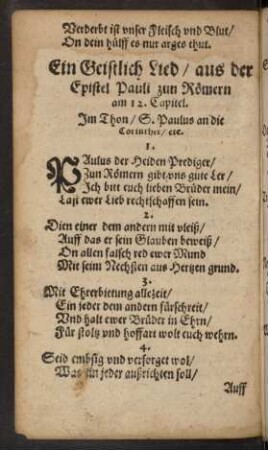 Verderbt ist vnser Fleisch vnd Blut/
On dein hülff es nur arges thut.
Ein Geistlich Lied / aus der
Epistel Pauli zun Römern
am 12. Capitel.
Im Thon / S. Paulus an die
Corinther / etc.
1.
PAulus der Heiden Prediger/
Zun Römern gibt vns gute Ler/
Ich bitt euch lieben Brüder mein/
Last ewer Lieb rechtschaffen sein.
2.
Dien einer dem andern mit vleiß/
Auff das er sein Glauben beweiß/
On allen falsch red ewer Mund
Mit seim Nechsten aus Hertzen grund.
3.
Mit Ehrerbietung allezeit/
Ein jeder dem andern fürschreit/
Vnd halt ewer Brüder in Ehrn/
Für stoltz vnd hoffart wolt euch wehrn.
4.
Seid embsig vnd versorget wol/
Was ein jeder außrichten soll/
Auff